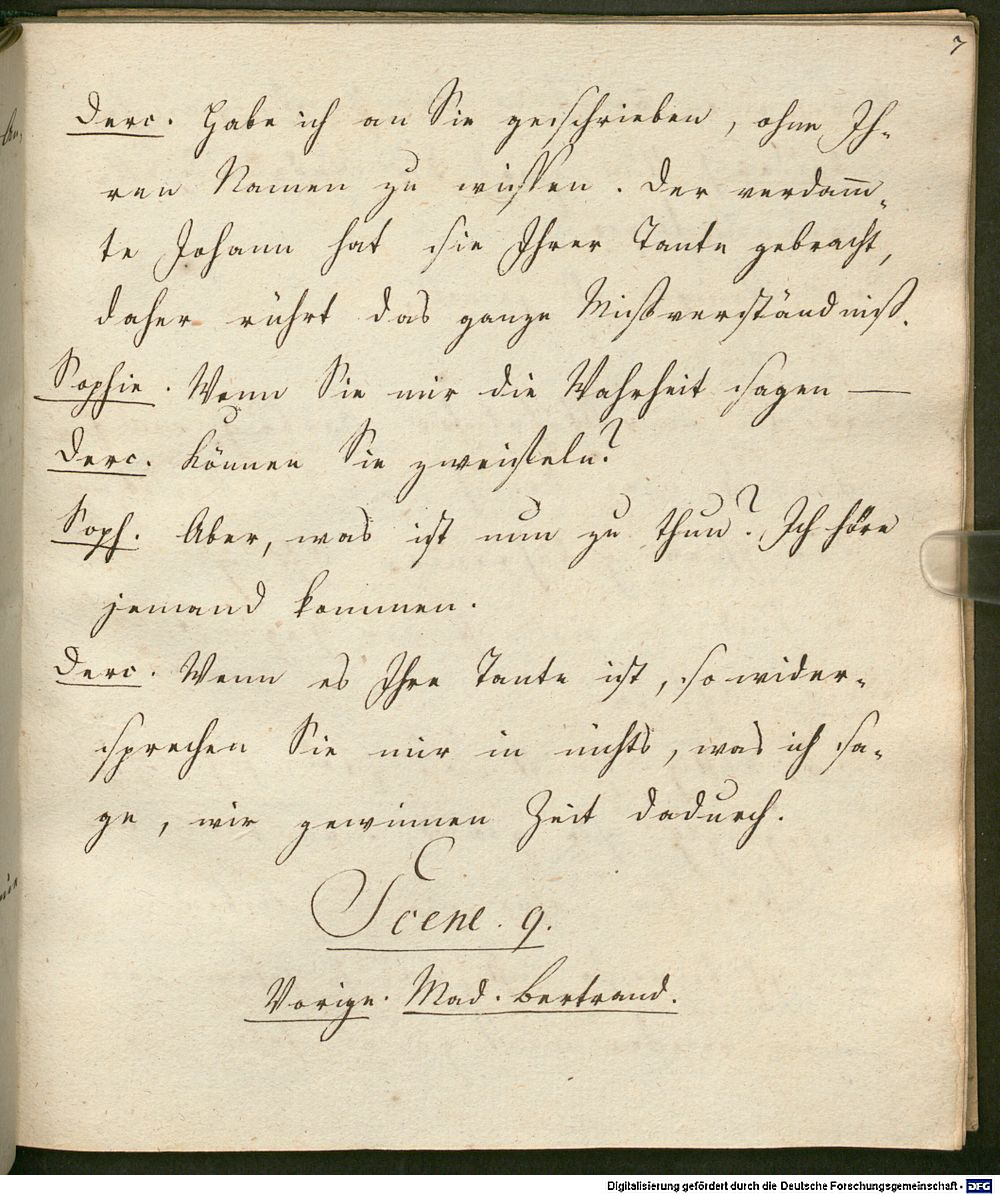 7
Derc. Habe ich an Sie geschrieben, ohne Ih-
ren Namen zu wissen. Der verdam̅-
te Johann hat sie Ihrer Tante gebracht,
daher rührt das ganze Mißverständniß.
Sophie. Wenn Sie mir die Wahrheit sagen —
Derc. Können Sie zweifeln?
Soph. Aber, was ist nun zu thun? Ich höre
jemand kommen.
Derc. Wenn es Ihre Tante ist, so wider-
sprechen Sie mir in nichts, was ich sa-
ge, wir gewinnen Zeit dadurch.
Scene. 9.
Vorige. Mad. Bertrand.
Digitalisierung gefördert durch die Deutsche Forschungsgemeinschaft - DFG